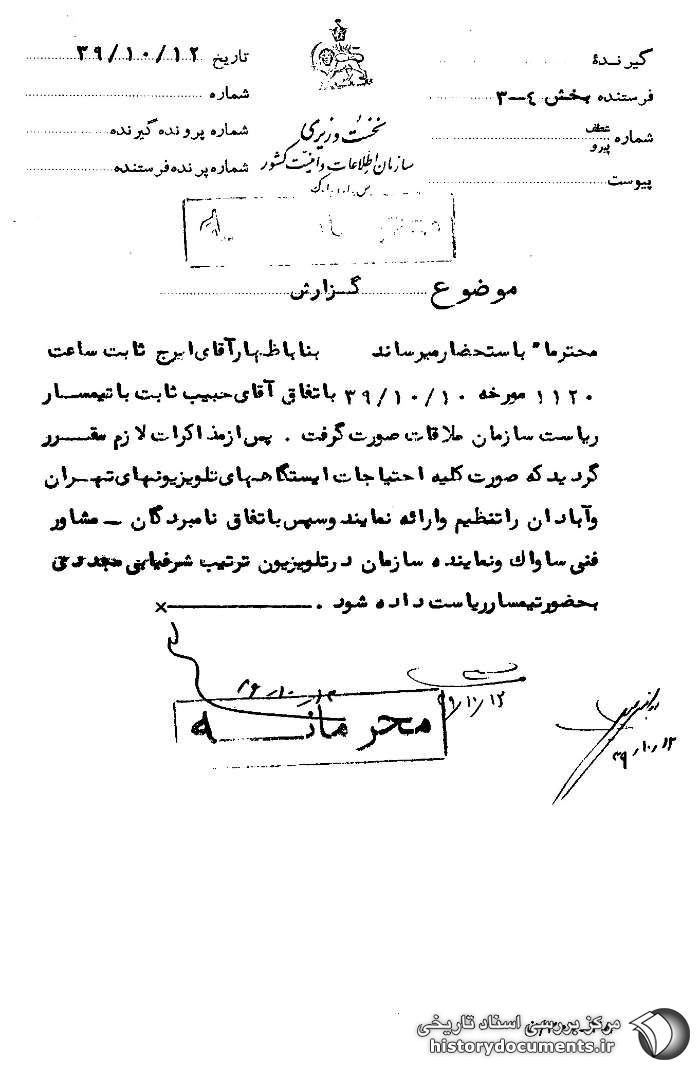 گیرندهٔ
فرستنده بخش ٤-٣
شماره عطف پیرو
پیوست
نخست وزیری
سازمان اطلاعات و امنیت کشور
س.ا.و.ا.ک
تاریخ ٣٩/١٠/١٢
شماره
شماره پرونده گیرنده
شماره پرنده فرستنده
موضوع گزارش
محترما" باستحضار میرساند بنا باظهار آقای ایرج ثابت ساعت
١١٢٠ مورخه ٣٩/١٠/١٠ باتفاق آقای حبیب ثابت با تیمسار
ریاست سازمان ملاقات صورت گرفت . پس از مذاکرات لازم مقرر
گردید که صورت کلیه احتیاجات ایستگاههای تلویزیونهای تهران
وآبادان را تنظیم وارائه نمایند وسپس باتفاق نامبردگان ـ مشاور
فنی ساواک ونماینده سازمان در تلویزیون ترتیب شرفیابی مجددی
بحضور تیمسار ریاست داده شود . ×
٣٩/١٠/١٢
محرمانه
٣٩/١٠/١٢
مرکز بررسی اسناد تاریخی
historydocuments.ir